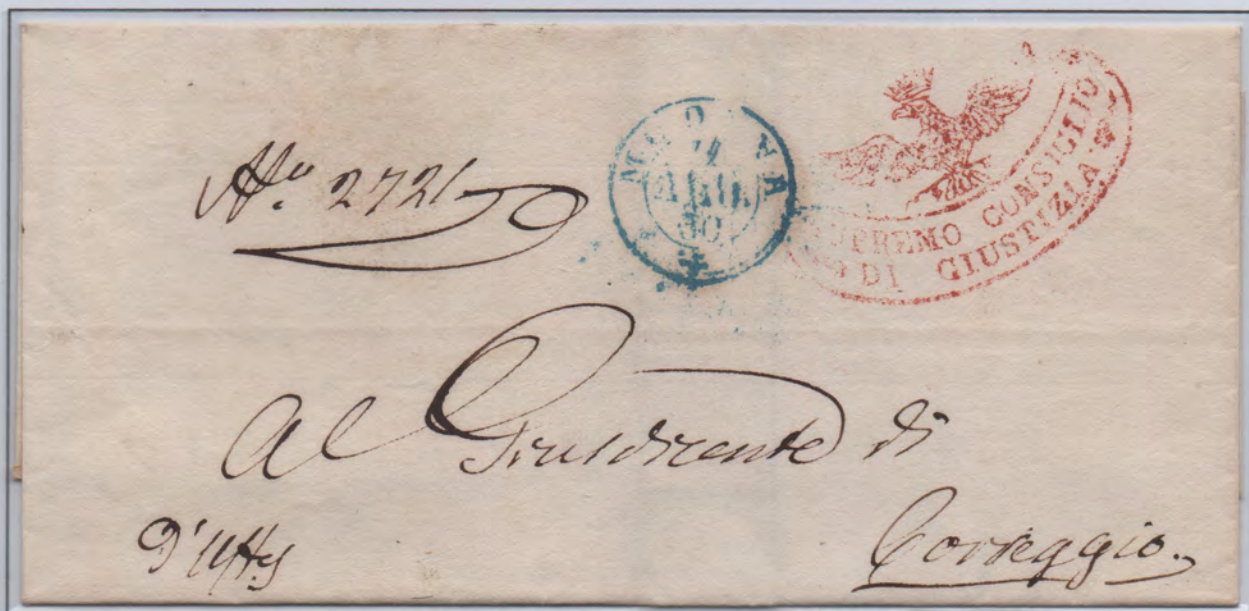 No. 2721
MODENA
SUPREMO CONSIGLIO
DI GIUSTIZIA
Al Giusdicente di
Correggio.
D'Uff